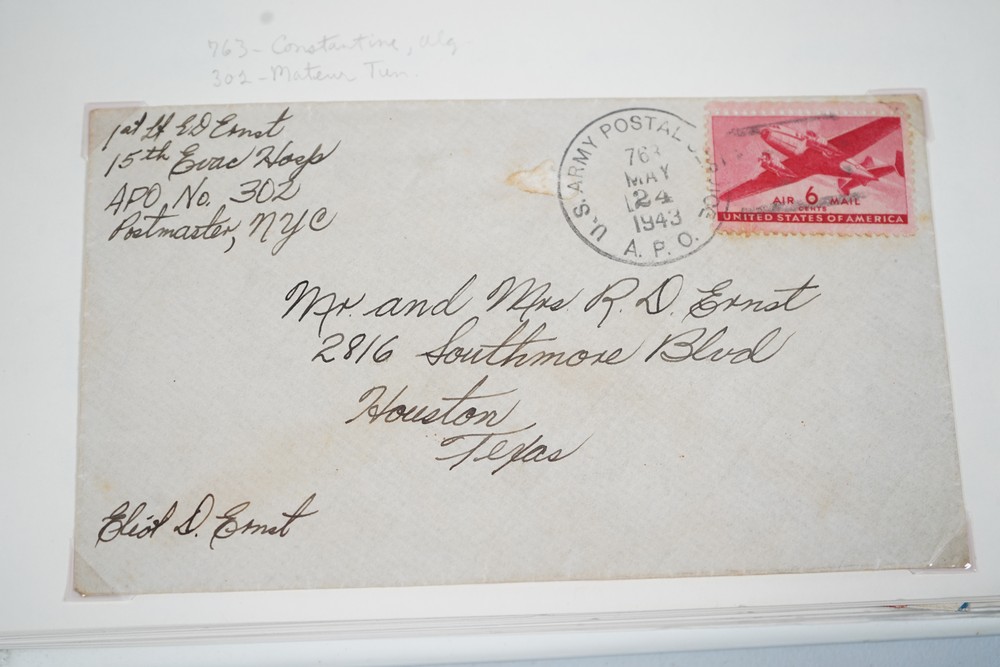 763 - Constantine, Alg
302 - Mateur Tun.
1st Lt ED Ernst
15th Evac Hosp
APO No. 302
Postmaster, NYC
U.S. ARMY POSTAL
763
MAY
24
1943
A. P. O.
AIR 6 MAIL
CENTS
UNITED STATES OF AMERICA
Mr. and Mrs. R. D. Ernst
2816 Southmore Blvd
Houston
Texas
Eliot D. Ernst